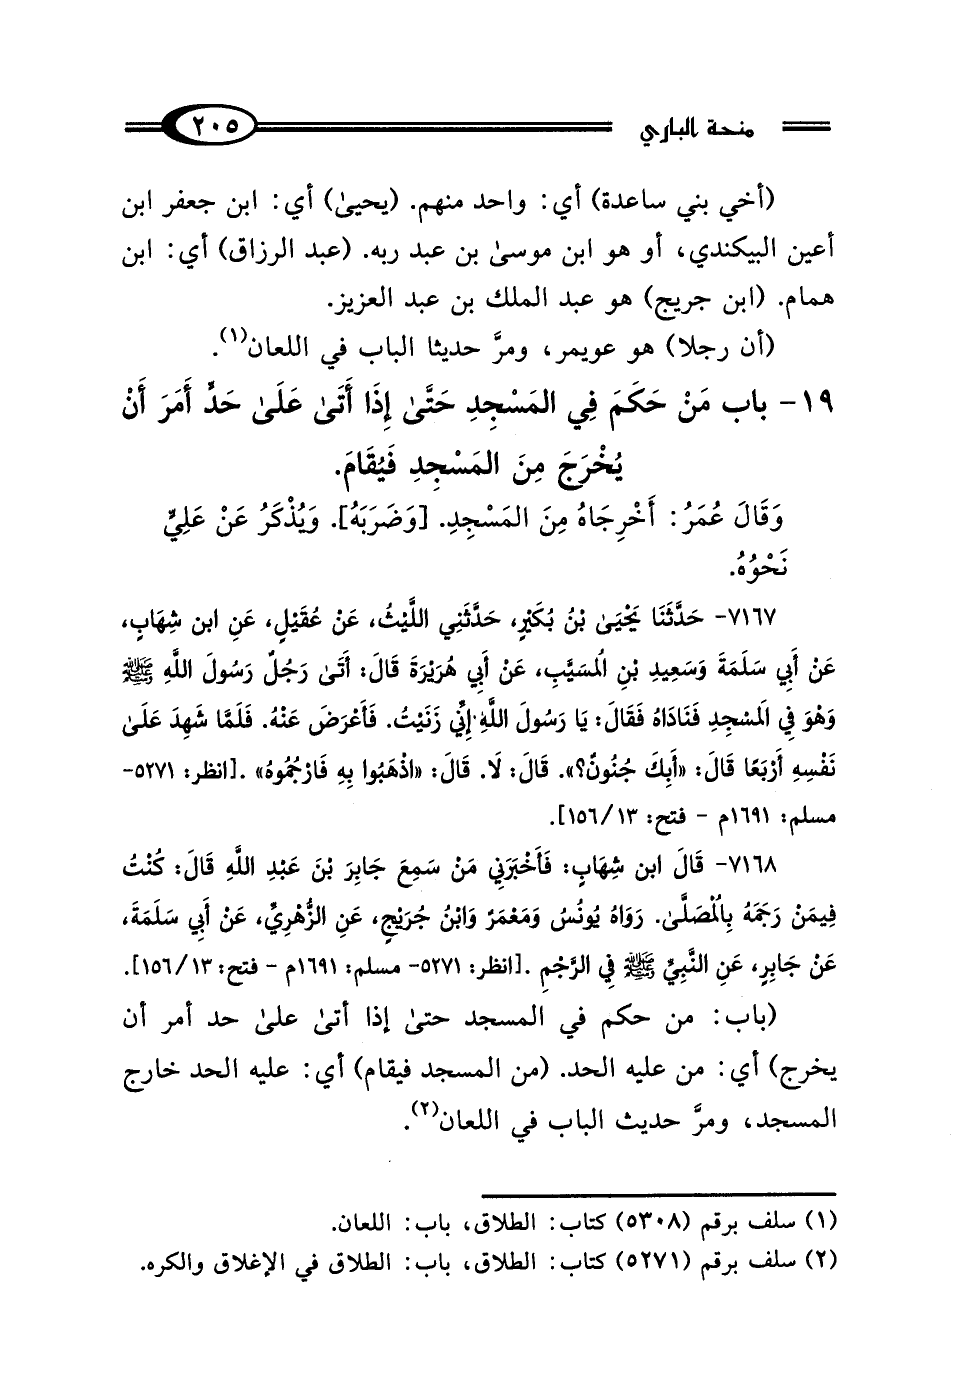 منحة الباري ٢٠٥
(أخي بني ساعدة) أي: واحد منهم. (يحيىٰ) أي: ابن جعفر ابن
أعين البيكندي، أو هو ابن موسىٰ بن عبد ربه. (عبد الرزاق) أي: ابن
همام. (ابن جريج) هو عبد الملك بن عبد العزيز.
(أن رجلا) هو عويمر، ومرَّ حديثا الباب في اللعان(١).
١٩- باب مَنْ حَكَمَ فِي المَسْجِدِ حَتَّىٰ إِذَا أَتَىٰ عَلَىٰ حَدٍّ أَمَرَ أَنْ
يُخْرَجَ مِنَ المَسْجِدِ فَيُقَامَ.
وَقَالَ عُمَرُ: أَخْرِجَاهُ مِنَ المَسْجِدِ. [وَضَرَبَهُ]. وَيُذْكَرُ عَنْ عَلِيٍّ
نَحْوُهُ.
٧١٦٧- حَدَّثَنَا يَحْيَىٰ بْنُ بُكَيْرٍ، حَدَّثَنِي اللَّيْثُ، عَنْ عُقَيْلٍ، عَنِ ابن شِهَابٍ،
عَنْ أَبِي سَلَمَةَ وَسَعِيدِ بْنِ المُسَيَّبِ، عَنْ أَبِي هُرَيْرَةَ قَالَ: أَتَىٰ رَجُلٌ رَسُولَ اللَّهِ ﷺ
وَهْوَ فِي المَسْجِدِ فَنَادَاهُ فَقَالَ: يَا رَسُولَ اللَّهِ إِنِّي زَنَيْتُ. فَأَعْرَضَ عَنْهُ. فَلَمَّا شَهِدَ عَلَىٰ
نَفْسِهِ أَرْبَعًا قَالَ: «أَبِكَ جُنُونٌ؟». قَالَ: لَا. قَالَ: «اذْهَبُوا بِهِ فَارْجُمُوهُ» .[انظر: ٥٢٧١-
مسلم: ١٦٩١م - فتح: ١٣/ ١٥٦].
٧١٦٨- قَالَ ابن شِهَابٍ: فَأَخْبَرَنِي مَنْ سَمِعَ جَابِرَ بْنَ عَبْدِ اللَّهِ قَالَ: كُنْتُ
فِيمَنْ رَجَمَهُ بِالْمُصَلَّىٰ. رَوَاهُ يُونُسُ وَمَعْمَرٌ وَابْنُ جُرَيْجٍ، عَنِ الزُّهْرِيِّ، عَنْ أَبِي سَلَمَةَ،
عَنْ جَابِرٍ، عَنِ النَّبِيِّ ﷺ فِي الرَّجْمِ .[انظر: ٥٢٧١- مسلم: ١٦٩١م - فتح: ١٣/ ١٥٦].
(باب: من حكم في المسجد حتىٰ إذا أتىٰ علىٰ حد أمر أن
يخرج) أي: من عليه الحد. (من المسجد فيقام) أي: عليه الحد خارج
المسجد، ومرَّ حديث الباب في اللعان(٢).
(١) سلف برقم (٥٣٠٨) كتاب: الطلاق، باب: اللعان.
(٢) سلف برقم (٥٢٧١) كتاب: الطلاق، باب: الطلاق في الإغلاق والكره.